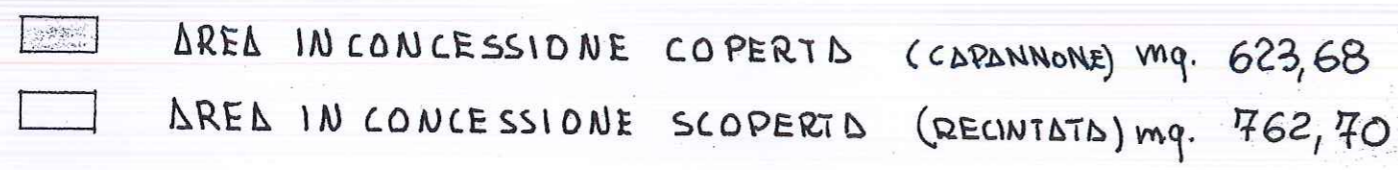 AREA IN CONCESSIONE COPERTA (CAPANNONE) mq. 623,68
AREA IN CONCESSIONE SCOPERTA (RECINTATA) mq. 762,70